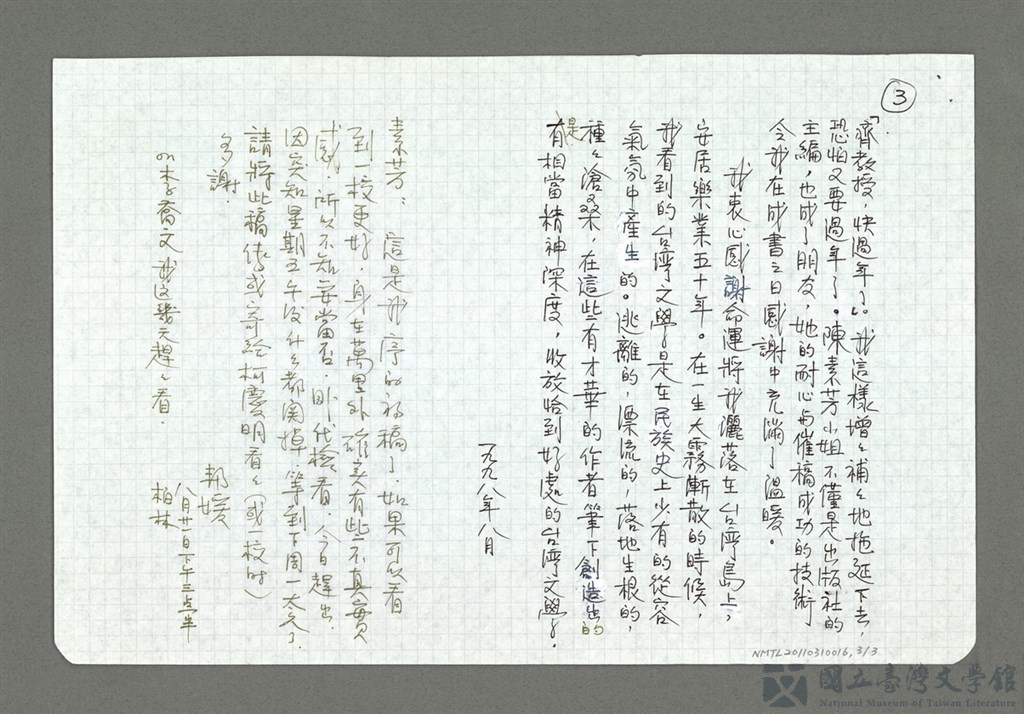 3
「齊教授，快過年了」。我這樣增增補補地拖延下去，
恐怕又要過年了。陳素芳小姐不僅是出版社的
主編，也成了朋友，她的耐心与催稿成功的技術
令我在成書之日感謝中充滿了溫暖。
我衷心感謝命運將我灑落在台灣島上，
安居樂業五十年。在一生大霧漸散的時候，
我看到的台灣文學是在民族史上少有的從容
氣氛中產生的。逃離的，漂流的，落地生根的，
種々滄桑，在這些有才華的作者筆下創造出的
是有相當精神深度，收放恰到好處的台灣文學。
一九九八年八月
素芳：這是我序的初稿了。如果可以看
到一校更好，身在萬里外確實有些不真實
感，所以不知妥當否，即代檢看。今日趕出，
因突知星期五午後什么都関掉，等到下周一太久了。
請將此稿傳或寄給柯慶明看看（或一校時）
多謝。
邦媛
八月廿一日下午三点半
柏林
李喬文我這幾天趕々看.
NMTL20110310016, 3/3
國立臺灣文學館
National Museum of Taiwan Literature